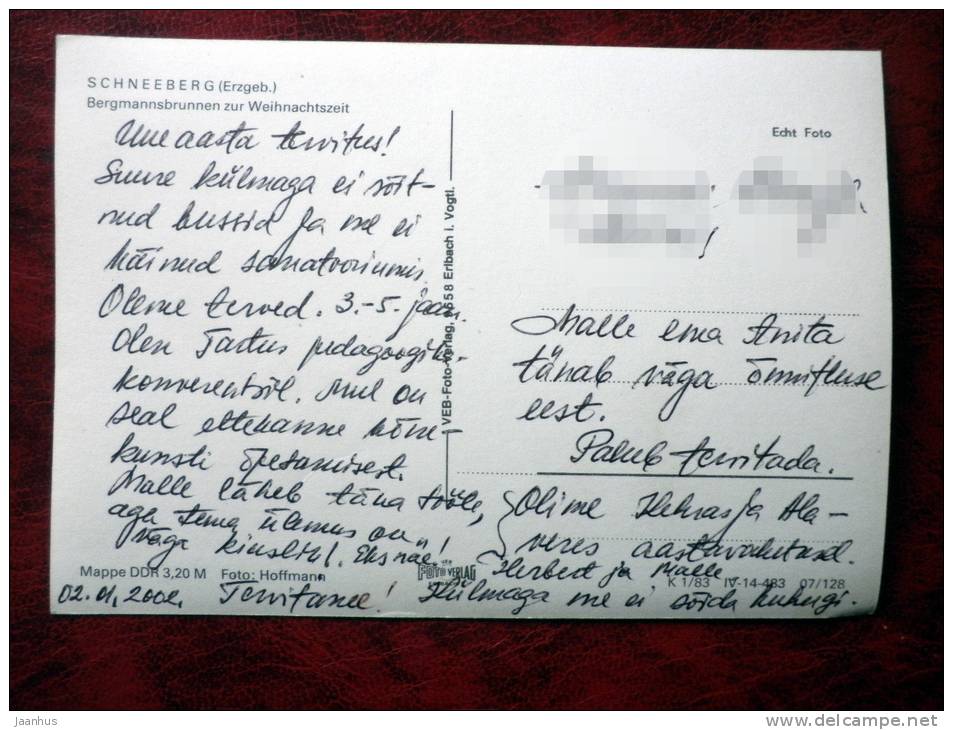 SCHNEEBERG (Erzgeb.)
Bergmannsbrunnen zur Weihnachtszeit
Uue aasta tervitus!
Suure külmaga ei sõit-
nud bussid ja me ei
käinud sanatooriumis.
Oleme terved. 3.-5. jaan.
olen Tartus pedagoogik.
konverentsil. Mul on
seal ettekanne kõne-
kunsti õpetamisest.
Malle läheb täna tööle,
aga tema ülemus on
väga
Mappe DDR 3,20 M Foto: Hoffmann
02.01.2002. Tervitame!
VEB-Foto-Verlag, 9658 Erlbach i. Vogtl.
Echt Foto
Malle ema Anita
tänab väga õnnitluse
eest.
Palub tervitada.
Olime Ilehras ja Ala-
veres aastavahetusel.
Herbert ja Malle
FOTO VERLAG
K 1/83 IV-14-483 07/128
Külmaga me ei sõida kuhugi.
jaanhus
www.delcampe.net